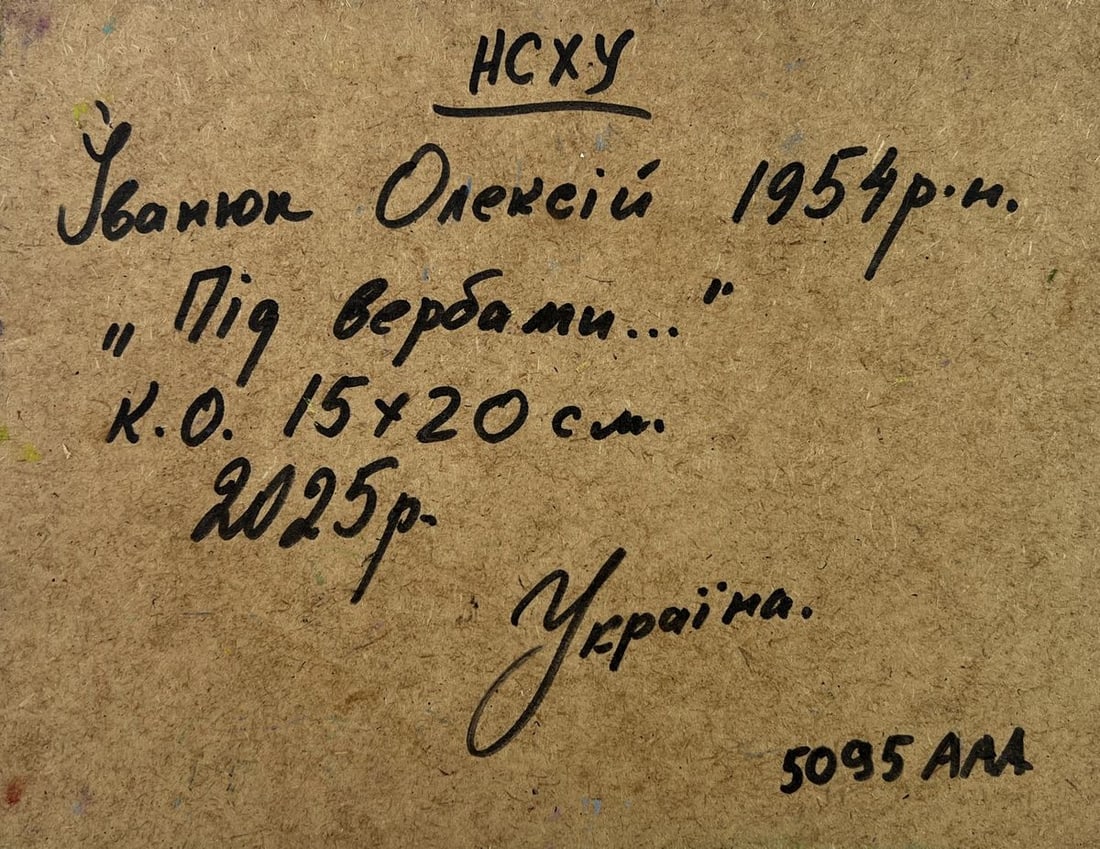 НСХУ
Іванюк Олексій 1954р.н.
„Під вербами..."
К.О. 15х20 см.
2025р.
Україна.
5095 ААА